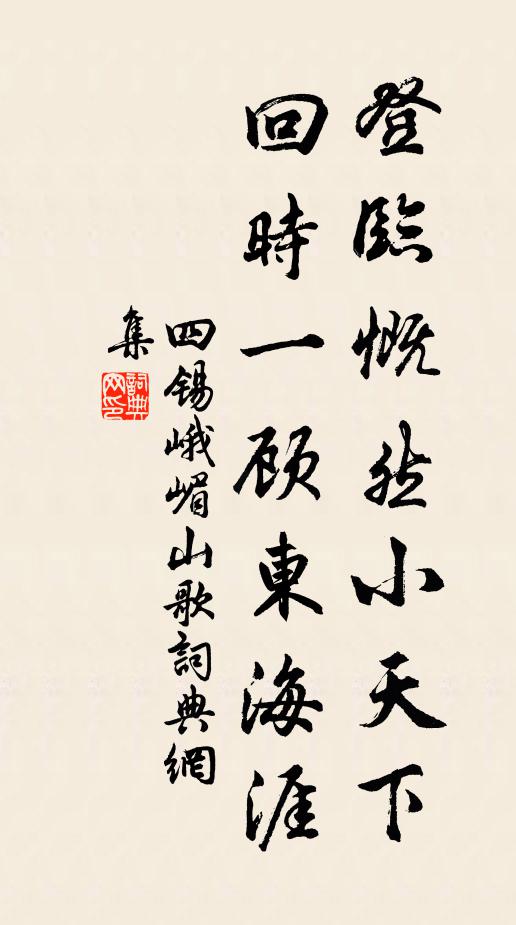 登臨慨然小天下
回時一顾東海涯
四锡峨嵋山歌詞典網
集
詞典
网印